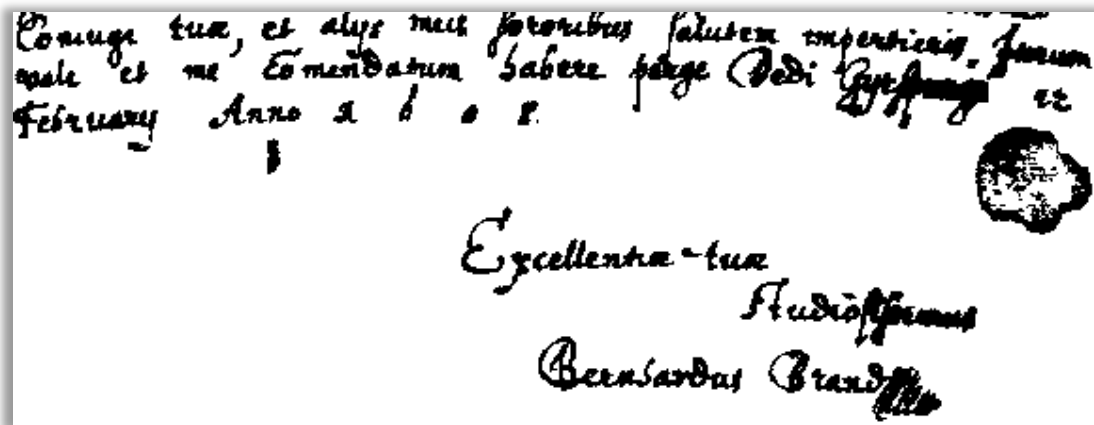 Coniuge tuæ, et alys meis sororibus salutem impertieris.
vale et me Comendatum habere perge Dedi 22
February Anno 1608.
Excellentiæ tuæ
Studiosissimus
Bernhardus Brand